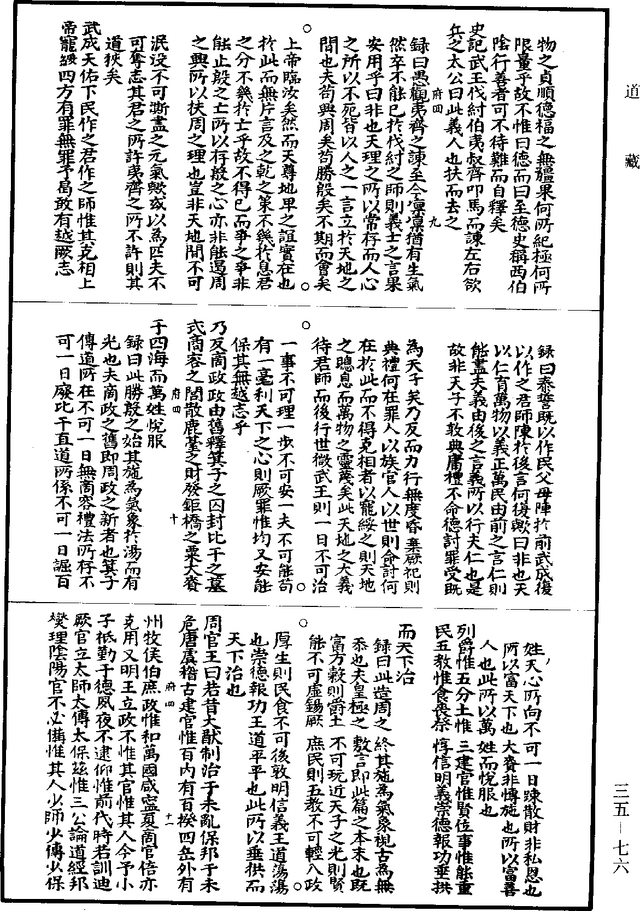 道藏
物之貞順德福之無疆果何所紀極何所
限量乎故不惟曰德而曰至德史稱西伯
陰行善者可不待難而自釋矣
史記武王伐紂伯夷叔齊叩馬而諫左右欲
兵之太公曰此義人也扶而去之
府四 九
錄曰愚觀夷齊之諫至今凜凜猶有生氣
然卒不能已於伐紂之師則義士之言果
安用乎曰非也天理之所以常存而人心
之所以不死皆以人之一言立於天地之
間也夫苟興周矣苟勝殷矣不期而會矣
上帝臨汝矣然而天尊地卑之誼實在也
於此而無片言及之乾之策不幾於息君
之分不幾於亡乎故不得已而爭之爭非
能止殷之亡所以存殷之心亦非能遏周
之興所以扶周之理也豈非天地間不可
泯没不可澌盡之元氣歟或以為匹夫不
可奪志其君之所許夷齊之所不許則其
道狹矣
武成天佑下民作之君作之師惟其克相上
帝寵綏四方有罪無罪予曷敢有越厥志
錄曰泰誓既以作民父母陳於前武成復
以作之君師陳於後言何復歟曰非也天
以仁育萬物以義正萬民由前之言仁則
能盡夫義由後之言義所以行夫仁也是
故非天子不敢典庸禮不命德討罪受既
為天子矣乃反而力行無度昏棄厥祀則
典禮何在罪人以族官人以世則命討何
在於此而不得克相者以寵綏之則天地
之聰息而萬物之靈蔑矣此天地之大義
待君師而後行世微武王則一日不可治
一事不可理一步不可安一夫不可能苟
有一毫利天下之心則厥罪惟均又安能
保其無越志乎
乃反商政政由舊釋箕子之囚封比干之墓
式商容之閭散鹿臺之財發鉅橋之粟大賚
府四 十
于四海而萬姓悅服
錄曰此勝殷之始其施為氣象於湯而有
光也夫商政之舊即周政之新者也箕子
傳道所在不可一日無商容禮法所存不
可一日廢比干直道所係不可一日誣百
姓天心所向不可一日踈散財非私恩也
所以富天下也大賚非慱施也所以富善
人也此所以萬姓而悅服也
列爵惟五分土惟三建官惟賢位事惟能重
民五教惟食喪祭惇信明義崇德報功垂拱
而天下治
錄曰此造周之終其施為氣象視古為無
忝也夫皇極之敷言即此篇之本末也既
富方穀則爵土不可玩近天子之光則賢
能不可虛錫厥庶民則五教不可輕八政
厚生則民食不可後敦明信義王道蕩蕩
也崇德報功王道平平也此所以垂拱而
天下治也
周官王曰若昔大猷制治于未亂保邦于未
危唐虞稽古建官惟百內有百揆四岳外有
府四 十一
州牧侯伯庶政惟和萬國咸寧夏商官倍亦
克用乂明王立政不惟其官惟其人今予小
子祗勤于德夙夜不逮仰惟前代時若訓迪
厥官立太師太傅太保茲惟三公論道經邦
燮理陰陽官不必備惟其人少師少傅少保
三五—七六